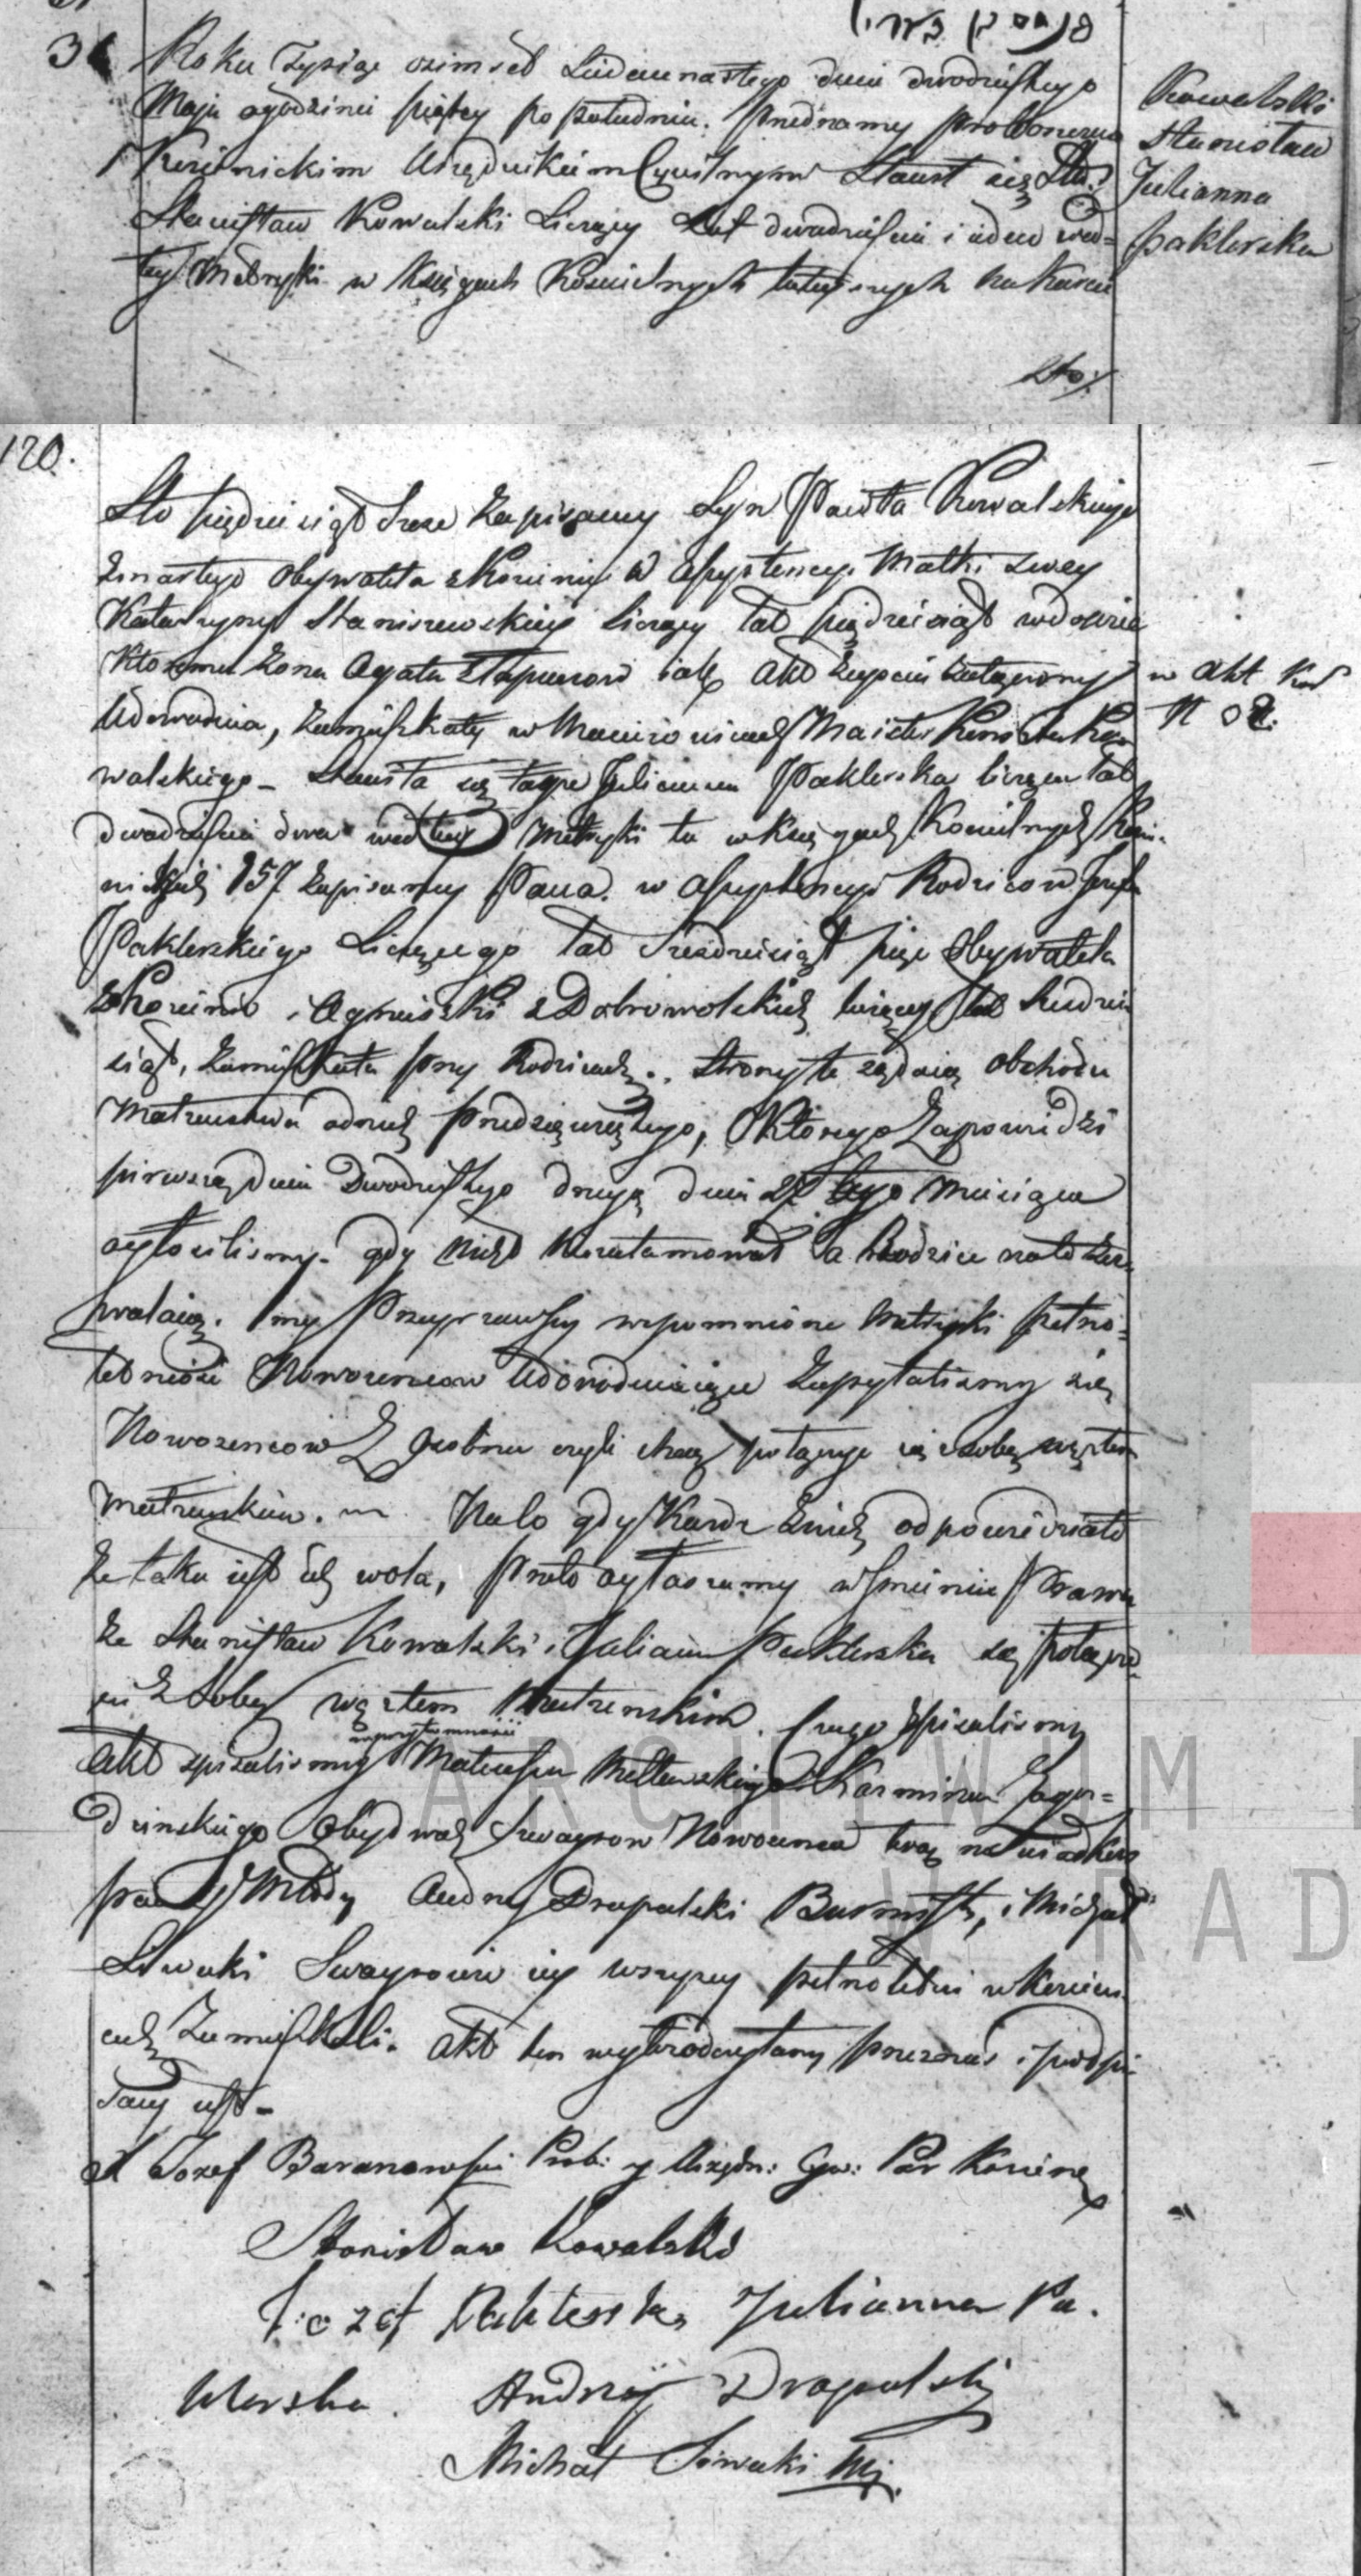 31
Roku Tysiąc osimset Siedemnastego dnia dwodziestego
Maja ogodzinie piątey popołudniu. Przednamy Proboszczem
Kozienickim Urzędnikiem Cywilnym Stawił się
Stanisław Kowalski Liczący Lat dwadzieścia i ieden wed=
ług Metryki w Księgach Kościelnych tuteyszych na karcie
sto
Kowalski
Stanisław
Julianna
Paklerska
120.
Sto piędziesiąt trze zapisaney Syn Pawła Kowalskiego
zmarłego Obywatela zKozienic w Assystencyi Matki swey
Katarzyny Staniszewskiey liczącey lat piędziesiąt wdowie
Ktoremu żona Agata iak Akt zeyścia załączony
Udowadnia, zamięszkały w Maista Ko
walskiego - Stawiła się także Julianna Paklerska licząca lat
dwadzieścia dwa według Metryki tu w Księgach Kościelnych Kozie-
nickich 157 zapisaney Pana. w Assystencyi Rodziców Józefa
Paklerskiego Liczącego lat Sześdziesiąt pięć Obywatela
zKozienic i Agnieszki z Dobrowolskich liczącey lat
siąt, zamięszkała przy Rodzicach. Strony te żądaią obchodu
Małżeństwa odnich przedsięwziętego, Ktorego Zapowiedzi
pierwszą dnia Dwodziestego drugą dnia 27 tego Miesiąca
ogłosiliśmy. gdy nikt nietamował a Rodzice nato zez-
walaią. my Przeyrzawszy wspomnione Metryki pełno=
letność Nowożencow Udowodniaiące Zapytaliśmy się
Nowożencow Z Osobna czyli chcą połączyć się z sobą węzłem
Małżeńskim. Nato gdy Każde Znich odpowiedziało
że taka iest ich wola, Przeto ogłaszamy wImieniu Prawa
że Stanisław Kowalski i Julianna Paklerska są połącze-
ni Z Sobą węzłem Małżeńskim. Czego Spisaliśmy
wprzytomności
akt spisaliśmy Mateusza Kazmirza Zagoz=
dzinskiego Obydwoch Szwagrow Nowożenca
Andrzey Drapalski Burmistrz, i Michał
Siwecki Szwagrowie iey wszyscy pełnoletni wKozieni-
cach Zamięszkali. akt ten przeznas i podpi-
sany iest -
X Jozef Baranowski Prob: y Urzędn: Cyw: Par Kozienic
Stanisław Kowalski
Jozef Paklerska Julianna Pa.
klerska. Andrzey Drapalski
Michał Siwecki
w Akt
N 02.
ARCHIWUM
W RAD